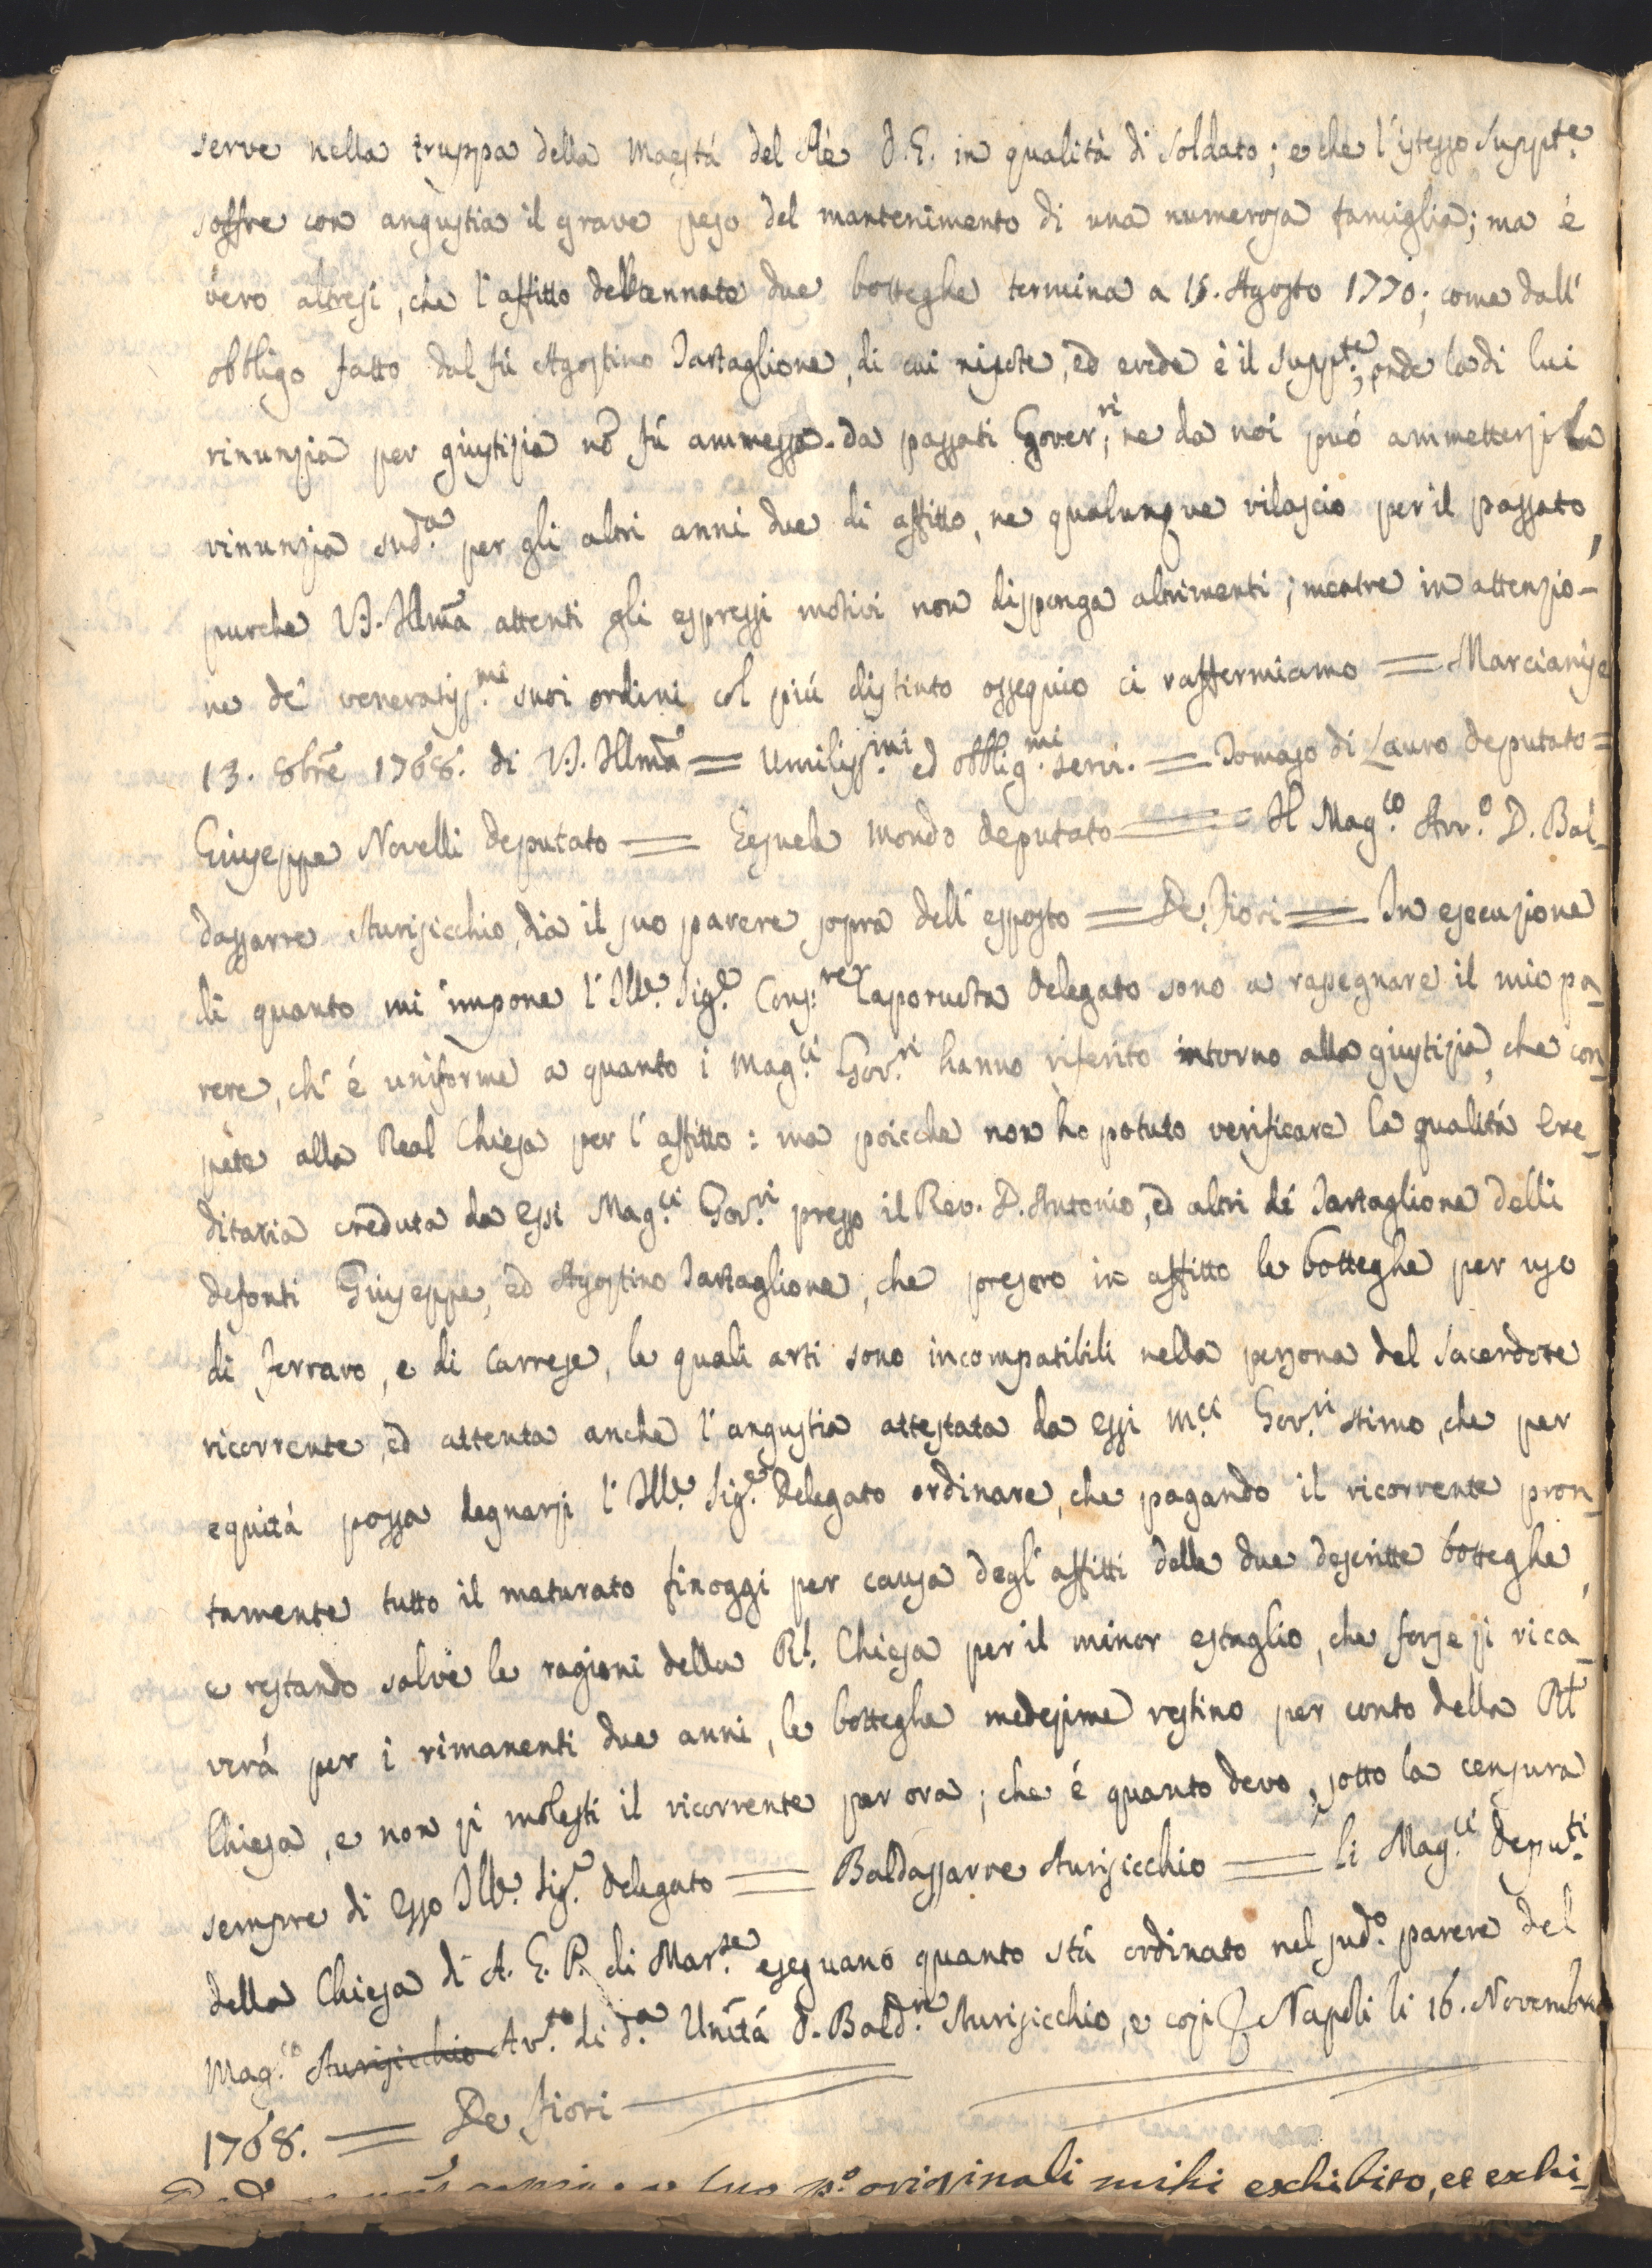 serve nella truppa della Maestá del Rè D.G. in qualità di Soldato; e che l'istesso Suppte.
soffre con angustia il grave peso del mantenimento di una numerosa famiglia; ma è
vero altresi, che l'affitto dell'cennate due botteghe termina a 15. Agosto 1770; come dall'
obbligo fatto dal fù Agostino Tartaglione, di cui nipote, ed erede è il Suppte.; onde la di lui
rinunzia per giustizia nõ fú ammessa da passati Goverri; ne da noi può ammettersi la
rinunzia suda. per gli altri anni due di affitto, ne qualunque rilascio per il passato,
purche V.S. Illmã attenti gli espressi motivi non disponga altrimenti; mentre in attenzio-
ne de' veneratissmi. suoi ordini col più distinto ossequio ci raffermiamo = Marcianise
13. 8brẽ 1768. di V.S. Illmã = Umilissmi. ed obbligmi. servi. = Tomaso di Lauro deputato =
Giuseppe Novelli deputato = Mondo deputato = Il Magco. Avvo. D. Bal-
dassarre Aurisicchio, dia il suo parere sopra dell'esposto = De Fiori = In esecuzione
di quanto mi impone l'Ille. Sige. Consre. Caporuota Delegato sono a rassegnare il mio pa-
rere, ch'è uniforme a quanto i Magci. Govri. hanno riferito intorno alla giustizia, che con-
pete alla Real Chiesa per l'affitto: ma poicche non ho potuto verificare la qualità ere-
ditaria creduta da essi Magci. Govri. presso il Rev. D. Antonio, ed altri dé Tartaglione delli
defonti Giuseppe, ed Agostino Tartaglione, che presero in affitto le botteghe per uso
di ferraro, e di Carrese, le quali arti sono incompatibili nella persona del Sacerdote
ricorrente, ed attenta anche l'angustia attestata da essi Mci. Govri. stimo, che per
equità possa degnarsi l'Ille. Sige. Delegato ordinare, che pagando il ricorrente pron-
tamente tutto il maturato finoggi per causa degl'affitti delle due descritte botteghe,
e restando salve le ragioni della Rl. Chiesa per il minor estaglio, che forse si rica-
verà per i rimanenti due anni, le botteghe medesime restino per conto della Rl
Chiesa, e non si molesti il ricorrente per ora; che è quanto devo, sotto la censura
sempre di esso Ille. Sige. Delegato = Baldassarre Aurisicchio = Li Magci. deputi.
della Chiesa di A. G. P. di Marse. eseguano quanto stá ordinato nel sudo. parere del
Magco. Aurisicchio Avto. di da. Unitá D. Baldre. Aurisicchio, e cosi Napoli li 16. Novembre
1768. = De Fiori
originali mihi exhibito, et exhi-